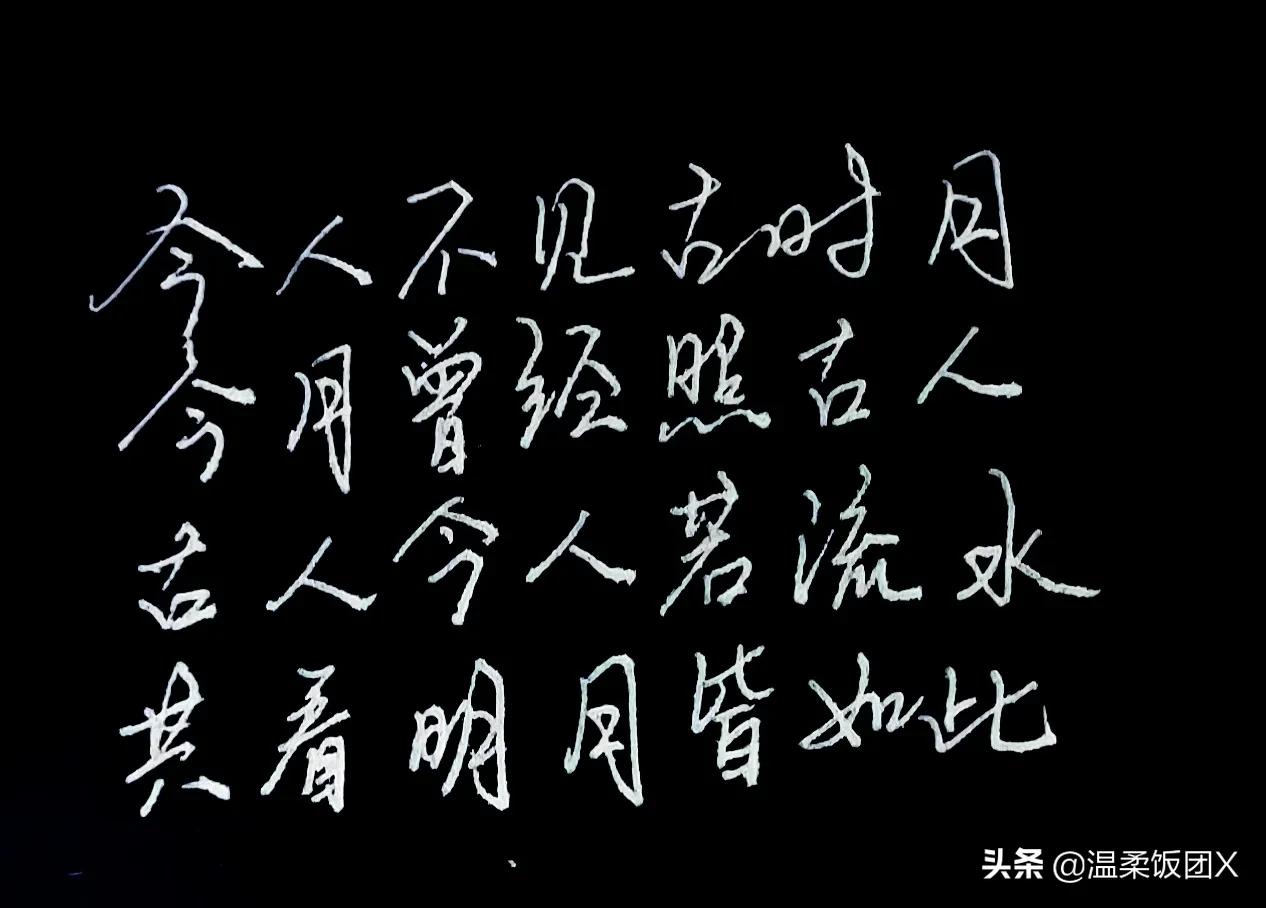 今人不见古时月
今月曾经照古人
古人今人若流水
共看明月皆如此
头条 @温柔饭团X